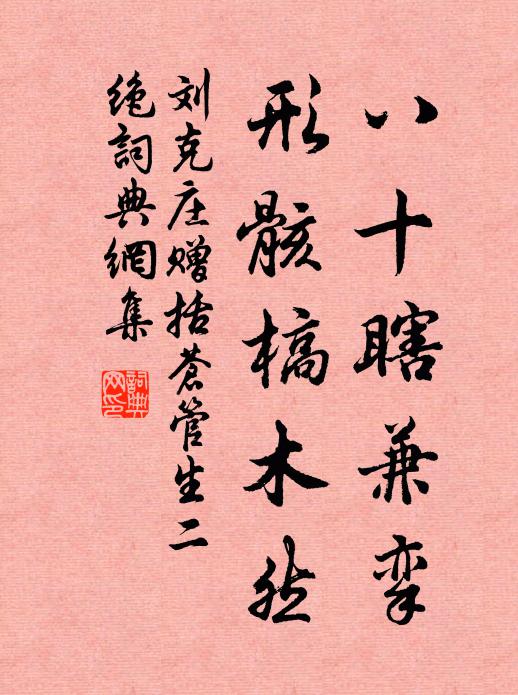 八十瞎兼挛
形骸槁木然
刘克庄赠括苍管生二
绝词典網集
詞典网印